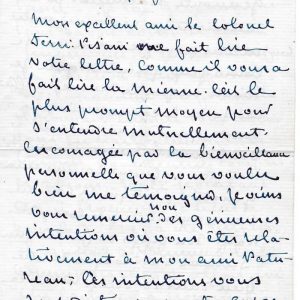 Mon excellent ami le colonel
Ferri Pisani me fait lire
votre lettre, comme il vous a
fait lire la mienne. C'est le
plus prompt moyen pour
s'entendre mutuellement.
Encouragée par la bienveillance
personnelle que vous voulez
bien me témoigner, je viens
vous remercier des généreuses
intentions où vous êtes rela-
tivement à mon ami Patu-
reau; ces intentions vous